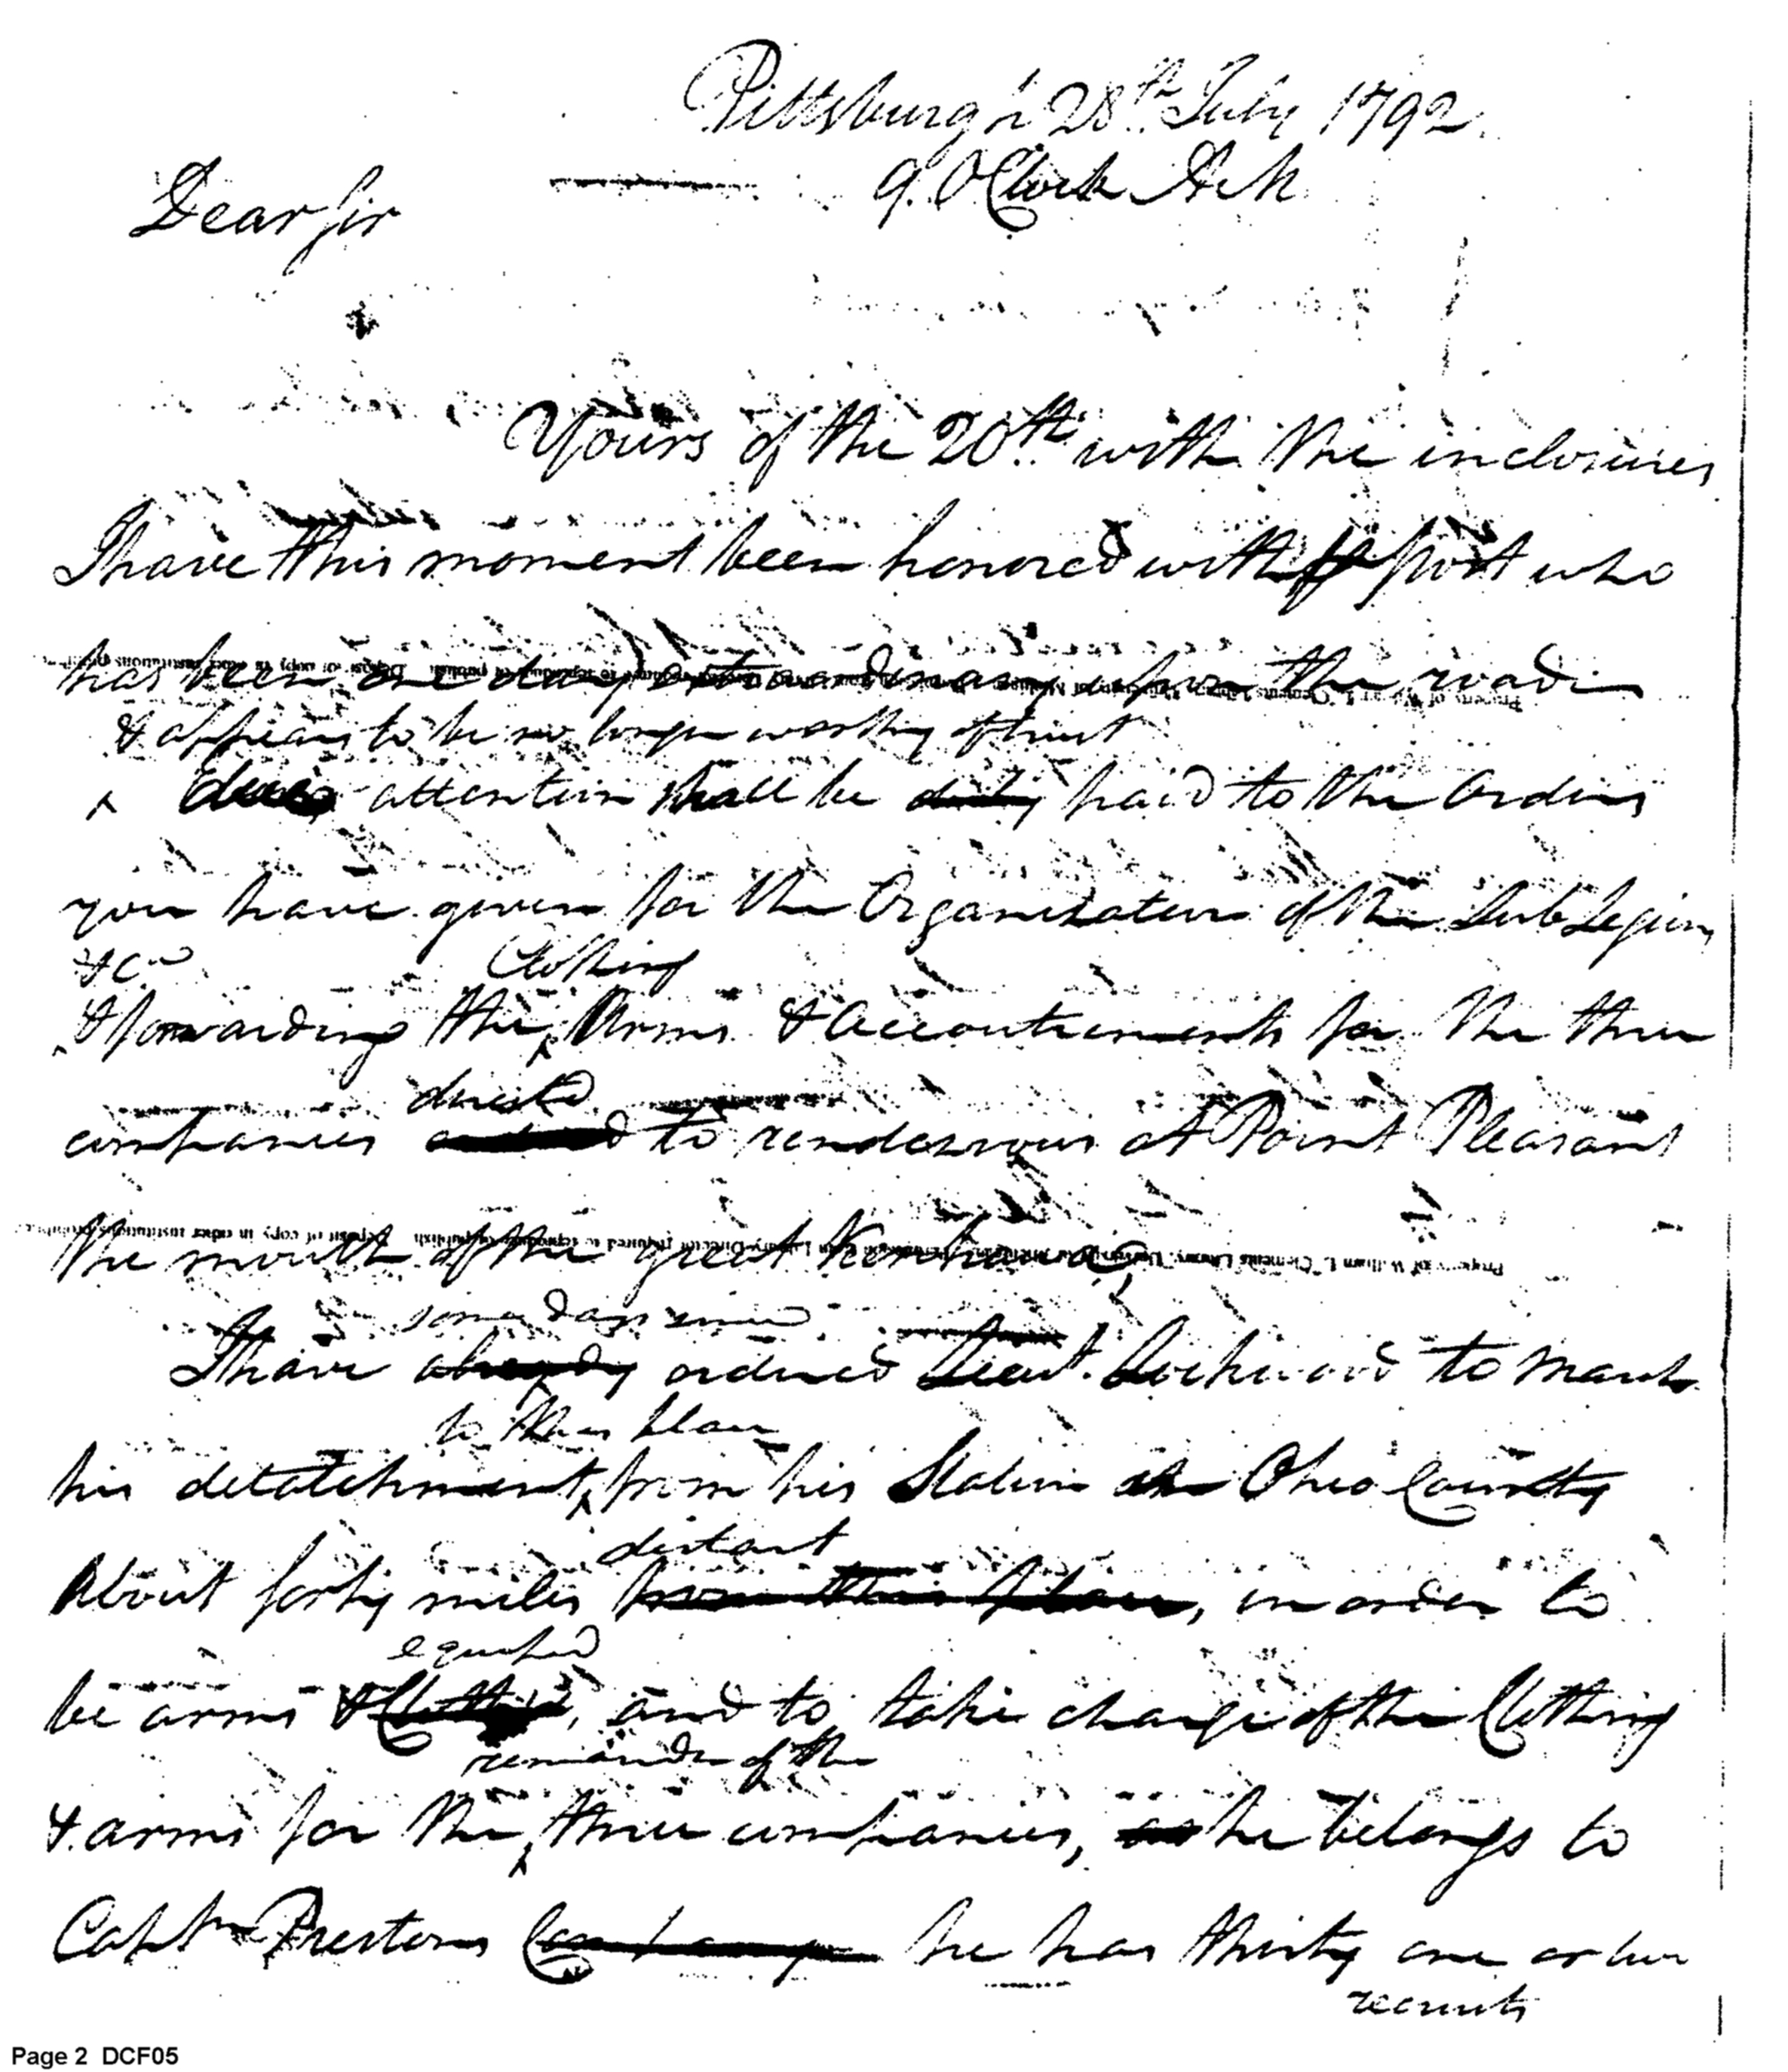 Pittsburgh 28th July 1792
9. OClock
Dear Sir
Yours of the 20th with the inclosures
I have this moment been honored with post who
has been one day extraordinary upon the road
& appears to be no longer worthy of trust
due attention shall be duly paid to the Orders
you have given for the Organization of the Sub Legion,
&c
Clothing
& forwarding the Arms & Accoutrements for the three
directed
companies ordered to rendezvous at Point Pleasant
the mouth of the great Kenhawa,
some days since
I have already ordered Lieut. Lockwood to march
to this place
his detatchment, from his Station in Ohio County
About forty miles
distant
from this place, in order to
equiped
be arms & Clothed, and to take charge of the Clothing
remainder of the
& arms for the three companies, as he belongs to
Captn Prestons Company he has thirty one or two
recruits
Page 2 DCF05